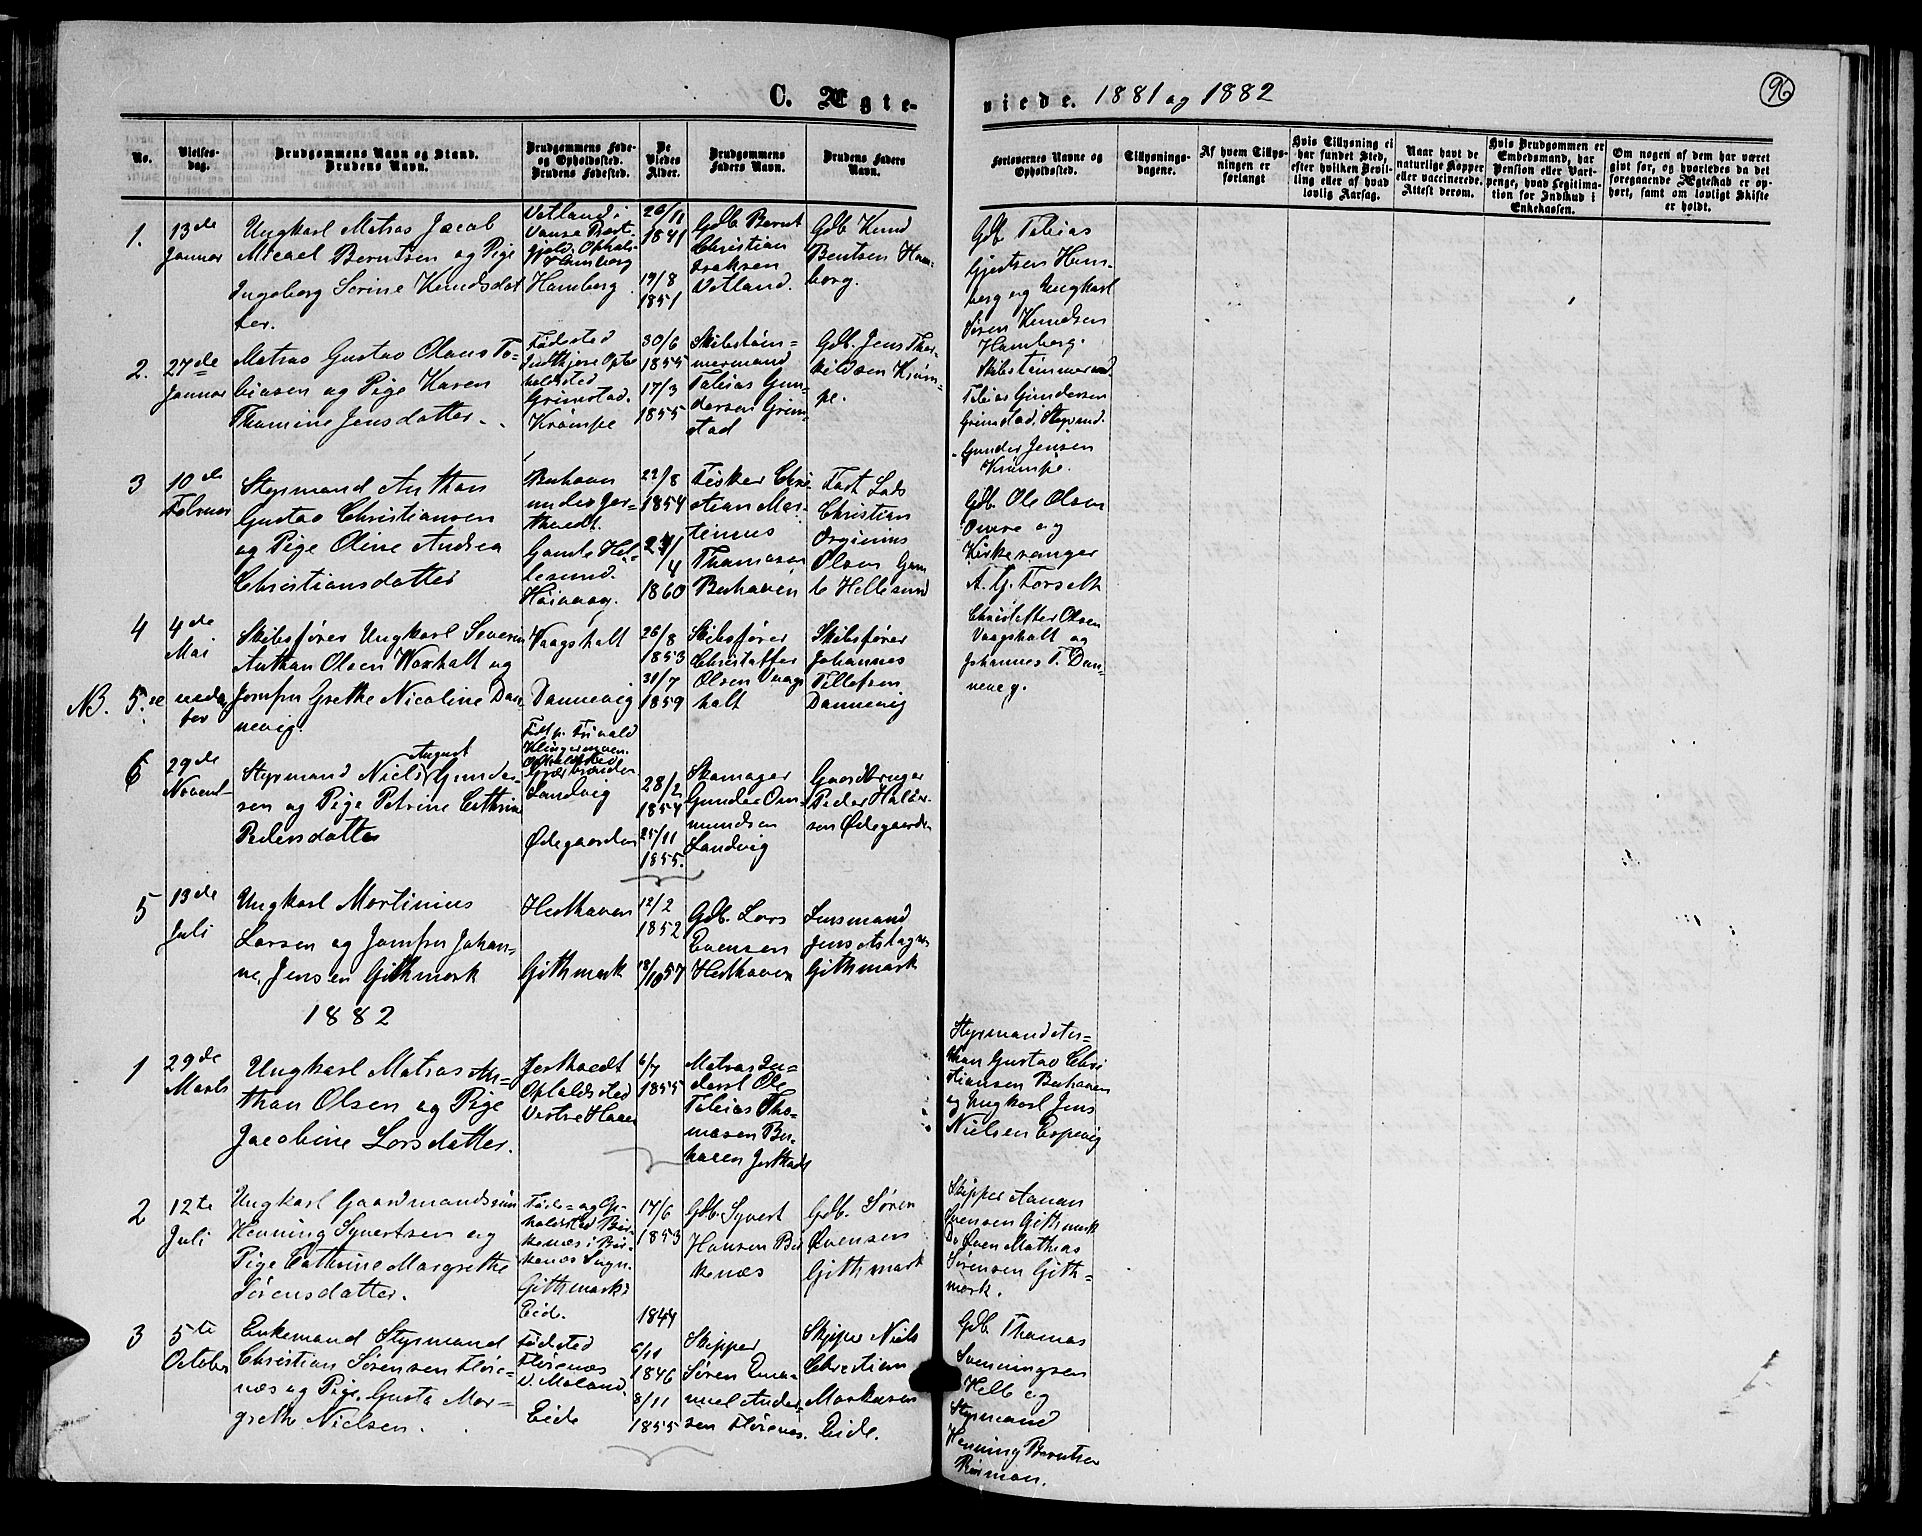 C. Ægte-
viede. 1881 og 1882
96
No.
Vielses-
dag.
Brudgommens Navn og Stand.
Brudens Navn.
Brudgommens Føde-
og Opholdssted.
Brudens Fødested.
De
Viedes
Alder.
Brudgommens
Faders Navn.
Brudens Faders
Navn.
Forlovernes Navne og
Opholdssted.
Tillysnings-
dagene.
Af hvem Tillys-
ningen er
forlangt
Hvis Tillysning ei
har fundet Sted,
efter hvilken Bevil-
ling eller af hvad
lovlig Aarsag.
Naar havt de
naturlige Kopper
eller vaccinerede.
Attest derom.
Hvis Brudgommen er
Embedsmand, har
Pension eller Vart-
penge, hvad Legitima-
tion for Indskud i
Enkekassen.
Om nogen af dem har været
givt før, og hvorledes da det
foregaaende Ægteskab er op-
hørt, samt om lovligt Skifte
er holdt.
1.
13de
Januar
Ungkarl Matros Jacob
Micael Berntsen og Pige
Ingeborg Serine Knudsdat
ter.
Vetland i
Vanse Præst-
gjeld. Ophols-
Hamberg
Hamberg
26/11
1841
19/8
1851
Gdb. Bernt
Christian
Isaksen
Vetland.
Gdb Knud
Bentsen Ham-
berg.
Gdb. Tobias
Gjertsen Ham-
berg og Ungkarl
Søren Knudsen
Hamberg.
2.
27de
Januar
Matros Gustav Olaus To-
biasen og Pige Karen
Thomine Jensdatter.
Fødested
Indtjore Opt-
holdsted
Grimstad.
Krømpe
30/6
1855
17/3
1855
Skibstøm-
mermand
Tobias Gun-
dersen Grim-
stad
Gdb. Jens Thor-
kildsen Krøm-
pe.
Skibstømmermd.
Tobias Gundersen
Grimstad. Styrmd.
Gunder Jensen
Krømpe.
3
10de
Februar
Styrmand Anthon
Gustav Christiansen
og Pige Oline Andrea
Christiansdatter
Buhavn
under Jor-
thvedt.
Gamle Hel-
lesund.
Høivaag.
22/8
1854
1860
Fisker Chri
stian Mar-
tinius
Thomasen
Buhaven
Fast Lods
Christian
Orginius
Olsen Gam
le Hellesund
Gdb. Ole Olsen
Omre og
Kirkesanger
A. G. Torseth
4
4de
Mai
Skibsfører Ungkarl Severin
Anthon Olsen Waxhalt og
Jomfru Grethe Nicoline Dan-
nevig.
Vaagshalt
Dannevig
26/8
1853
31/7
1859
Skibsfører
Christoffer
Olsen Vaags
halt
Skibsfører
Johannes
Tellefsen
Dannevig
Christoffer Olsen
Vaagshalt og
Johannes T. Dan-
nevig.
NB. 5.te
neden
for
6
29de
Novemb-
Styrmand Niels August Gunder-
sen og Pige Petrine Cathrine
Pedersdatter
Født p. Frivold
Opholdssted
Landvig
Ødegaarden
28/2
1854
25/11
1855.
Skomager
Gunder Om-
mundsen
Landvig
Gaardbruger
Peder Halvor-
sen Ødegaarden
5
13de
Juli
Ungkarl Martinius
Larsen og Jomfru Johan-
ne, Jensen Githmark
Hesthaven
Githmark
12/2
1852
18/10 57
Gdb. Lars
Evensen
Hesthaven
Lensmand
Jens Aslagsen
Githmark
1882
1
29de
Marts
Ungkarl Matros An-
thon Olsen og Pige
Jacobine Larsdatter.
Jorthvedt
Opholdsted
Vestre Haaen
6/7
1855
Matros In-
derst Ole
Tobias Tho-
masen Bu-
haven Jorthvedt
Styrmand An-
thon Gustav Chri
stiansen Buhaven
og Ungkarl Jens
Nielsen Espevig
2
12te
Juli
Ungkarl Gaardmandssøn
Henning Syvertsen og
Pige Cathrine Margrethe
Sørensdatter.
Føde- og Op-
holdssted Bir-
kenæs i Bir-
kenæs Sogn.
Githmark
Eide.
17/6
1853
1844
Gdb. Syvert
Hansen Bir
kenæs
Gdb. Søren
Svensen
Githmark
Skipper Aanon
Svensen Githmark
Do Sven Mathias
Sørensen Gith-
mark.
3
5te
October
Enkemand Styrmand
Christian Sørensen Fløre-
næs og Pige Gusta Mar-
grethe Nielsen.
Fødsted
Fløsenæs
V. Moland.
Eide
6/11
1846
8/11
1855
Skipper
Søren Ema-
nuel Ander-
sen Flørenæs.
Skipper Niels
Christian
Markusen
Eide.
Gdb. Thomas
Svenningsen
Helle og
Styrmand
Henning Berntsen